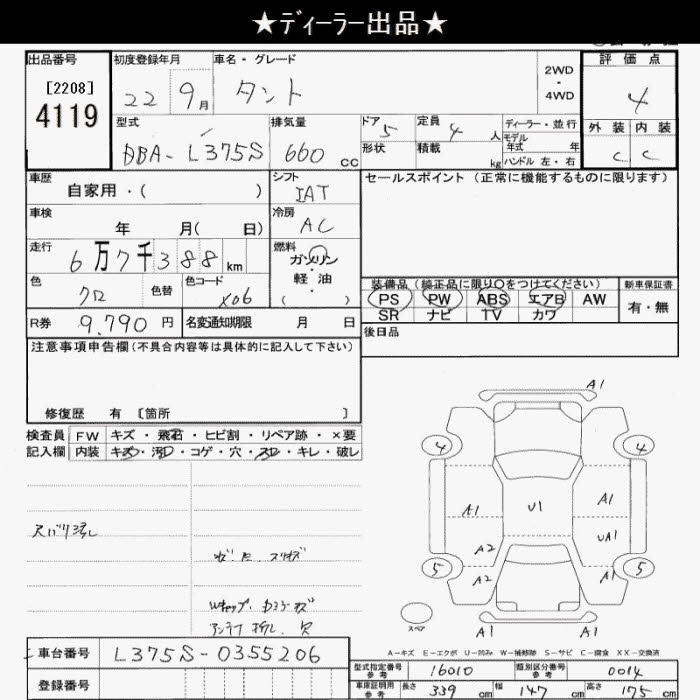 ★ディーラー出品★
出品番号
[2208]
4119
初度登録年月
22 9月
車名・グレード
タント
2WD
・
4WD
評価点
4
外装 内装
C C
型式
DBA-L375S
排気量
660 cc
ドア 5
形状
定員 4 人
積載 kg
ディーラー・並行
モデル
年式 年
ハンドル 左・右
車歴
自家用・( )
シフト
IAT
車検
年 月( 日)
冷房
AC
走行
6万7千388 km
燃料
ガソリン
軽油
( )
色
クロ
色替
色コード
X06
R券 9,790 円
名変通知期限 月 日
セールスポイント (正常に機能するものに限ります)
装備品 (純正品に限り○をつけてください)
PS PW ABS エアB AW
SR ナビ TV カワ
新車保証書
有・無
後日品
注意事項申告欄(不具合内容等は具体的に記入して下さい)
修復歴 有 〔箇所 〕
検査員
記入欄
FW キズ・飛石・ヒビ割・リペア跡・×要
内装 キズ・汚レ・コゲ・穴・スレ・キレ・破レ
A1
4 4
A1 U1 A1
UA1
A2
5 5
A2 A1
スペア
A1 A1
A-キズ E-エクボ U-凹み W-補修跡 S-サビ C-腐食 XX-交換済
車台番号 L375S-0355206
登録番号
型式指定番号
参考
16010
類別区分番号
参考
0014
車庫証明用
参考
長さ 339 cm 幅 147 cm 高さ 175 cm